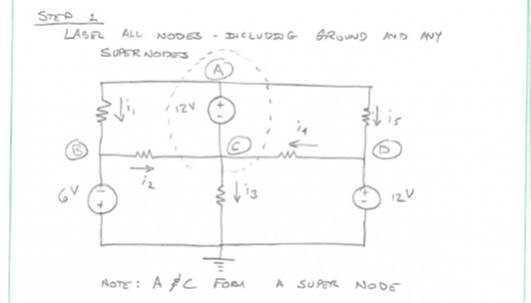 STEP 1
LABEL ALL NODES - INCLUDING GROUND AND ANY
SUPER NODES
A
i1
12V
+
-
i4
i5
B
C
D
i2
i3
6V
-
+
+
-
12V
NOTE: A & C FORM A SUPER NODE